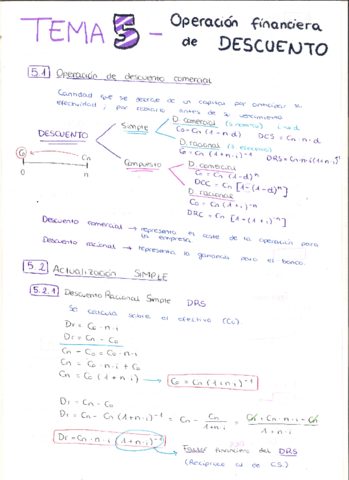 TEMA 5 - Operación financiera
de DESCUENTO
5.1 Operación de descuento comercial
Cantidad que se descuenta de un capital por anticipar su
efectividad, por cobrarlo antes de su vencimiento
DESCUENTO
Simple
D. comercial
C0 = Cn (1 - n·d)
DCS = Cn · n · d
D. racional
C0 = Cn (1 + n·i)⁻¹
DRS = Cn·n·i(1+n·i)⁻¹
C0
Cn
0
n
Compuesto
D. comercial
C0 = Cn (1-d)ⁿ
DCC = Cn [1-(1-d)ⁿ]
D. racional
C0 = Cn (1+i)⁻ⁿ
DRC = Cn [1-(1+i)⁻ⁿ]
Descuento comercial → representa el coste de la operación para
la empresa
Descuento racional → representa la ganancia para el banco.
5.2 Actualización SIMPLE
5.2.1 Descuento Racional Simple DRS
Se calcula sobre el efectivo (C0).
Dr = C0 · n · i
Dr = Cn - C0
Cn - C0 = C0 · n · i
Cn = C0 · n · i + C0
Cn = C0 (1 + n·i) → C0 = Cn (1+n·i)⁻¹
Dr = Cn - C0
Dr = Cn - Cn (1+n·i)⁻¹ = Cn - Cn / 1+n·i = Cn + Cn·n·i - Cn / 1+n·i
Dr = Cn · n · i (1+n·i)⁻¹
Factor financiero del DRS
(Recíproco al de CS.)